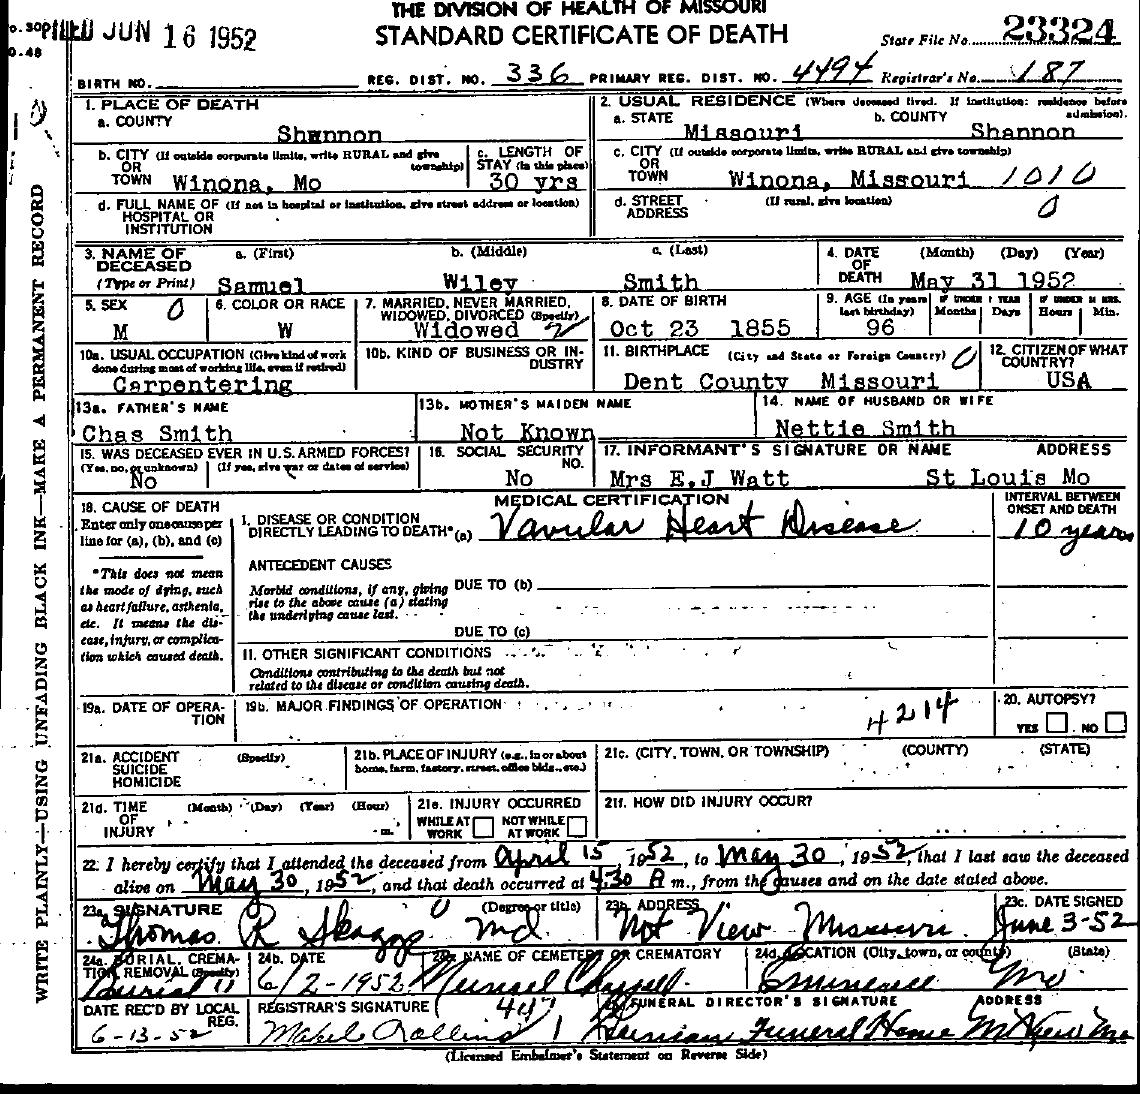 THE DIVISION OF HEALTH OF MISSOURI
JUN 16 1952
STANDARD CERTIFICATE OF DEATH
State File No. 23324
BIRTH NO.
REG. DIST. NO. 336 PRIMARY REG. DIST. NO. 4494 Registrar's No. 187
WRITE PLAINLY—USING UNFADING BLACK INK—MAKE A PERMANENT RECORD
1. PLACE OF DEATH
a. COUNTY Shannon
b. CITY (If outside corporate limits, write RURAL and give township)
OR
TOWN Winona, Mo
c. LENGTH OF STAY (in this place)
30 yrs
d. FULL NAME OF (If not in hospital or institution, give street address or location)
HOSPITAL OR
INSTITUTION
2. USUAL RESIDENCE (Where deceased lived. If institution: residence before admission).
a. STATE Missouri b. COUNTY Shannon
c. CITY (If outside corporate limits, write RURAL and give township)
OR
TOWN Winona, Missouri 1010
d. STREET (If rural, give location)
ADDRESS 0
3. NAME OF DECEASED
(Type or Print)
a. (First) Samuel
b. (Middle) Wiley
c. (Last) Smith
4. DATE OF DEATH
(Month) (Day) (Year)
May 31 1952
5. SEX 0
M
6. COLOR OR RACE
W
7. MARRIED, NEVER MARRIED, WIDOWED, DIVORCED (Specify)
Widowed 2
8. DATE OF BIRTH
Oct 23 1855
9. AGE (In years last birthday)
96
IF UNDER 1 YEAR
Months Days
IF UNDER 24 HRS.
Hours Min.
10a. USUAL OCCUPATION (Give kind of work done during most of working life, even if retired)
Carpentering
10b. KIND OF BUSINESS OR INDUSTRY
11. BIRTHPLACE (City and State or Foreign Country) 0
Dent County Missouri
12. CITIZEN OF WHAT COUNTRY?
USA
13a. FATHER'S NAME
Chas Smith
13b. MOTHER'S MAIDEN NAME
Not Known
14. NAME OF HUSBAND OR WIFE
Nettie Smith
15. WAS DECEASED EVER IN U.S. ARMED FORCES?
(Yes, no, or unknown) (If yes, give war or dates of service)
No
16. SOCIAL SECURITY NO.
No
17. INFORMANT'S SIGNATURE OR NAME ADDRESS
Mrs E.J Watt St Louis Mo
18. CAUSE OF DEATH
Enter only one cause per line for (a), (b), and (c)
*This does not mean the mode of dying, such as heart failure, asthenia, etc. It means the disease, injury, or complication which caused death.
MEDICAL CERTIFICATION
I. DISEASE OR CONDITION
DIRECTLY LEADING TO DEATH* (a) Vavular Heart Disease
INTERVAL BETWEEN ONSET AND DEATH
10 years
ANTECEDENT CAUSES
Morbid conditions, if any, giving rise to the above cause (a) stating the underlying cause last.
DUE TO (b)
DUE TO (c)
II. OTHER SIGNIFICANT CONDITIONS
Conditions contributing to the death but not related to the disease or condition causing death.
19a. DATE OF OPERATION
19b. MAJOR FINDINGS OF OPERATION
4214
20. AUTOPSY?
YES NO
21a. ACCIDENT SUICIDE HOMICIDE (Specify)
21b. PLACE OF INJURY (e.g., in or about home, farm, factory, street, office bldg., etc.)
21c. (CITY, TOWN, OR TOWNSHIP) (COUNTY) (STATE)
21d. TIME OF INJURY (Month) (Day) (Year) (Hour)
m.
21e. INJURY OCCURRED
WHILE AT WORK NOT WHILE AT WORK
21f. HOW DID INJURY OCCUR?
22. I hereby certify that I attended the deceased from April 15, 1952, to May 30, 1952, that I last saw the deceased
alive on May 30, 1952, and that death occurred at 4:30 A m., from the causes and on the date stated above.
23a. SIGNATURE (Degree or title)
Thomas R Skaggs MD
23b. ADDRESS
Mt View Missouri
23c. DATE SIGNED
June 3-52
24a. BURIAL, CREMATION, REMOVAL (Specify)
Burial
24b. DATE
6/2-1952
24c. NAME OF CEMETERY OR CREMATORY
24d. LOCATION (City, town, or county) (State)
Eminence Mo
DATE REC'D BY LOCAL REG.
6-13-52
REGISTRAR'S SIGNATURE 447
Mabel Rollins
FUNERAL DIRECTOR'S SIGNATURE ADDRESS
Funeral Home Mt View Mo
(Licensed Embalmer's Statement on Reverse Side)